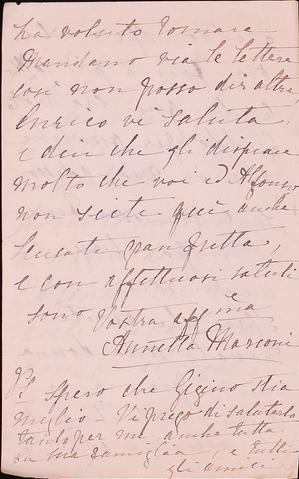 ha voluto tornare
Mandano via le lettere
così non posso dir altro
Enrico vi saluta
e dice che gli dispiace
molto che voi ed Alfonso
non siete quì anche
Scusate gran fretta,
e con affettuosi saluti
sono Vostra affma
Annetta Marconi
PS spero che Gigino stia
meglio – Vi prego di salutarlo
tanto per me anche tutta
la sua famiglia, e tutti
gli amici